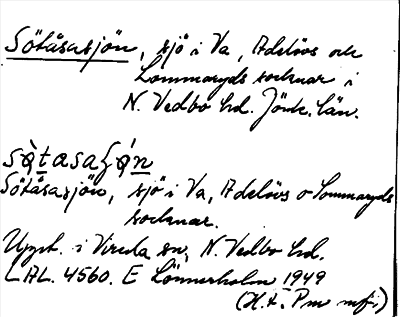 Sötåsasjön, sjö i Va, Adelövs och
Lommaryds socknar i
N. Vedbo hd. Jönk. län.
sø̀tasaʃǿn
Sötåsasjön, sjö i Va, Adelövs o Lommaryds
socknar.
Uppt. i Vireda sn, N. Vedbo hd.
LAL. 4560. E Lönnerholm 1949
(H.t. Pm mfi)